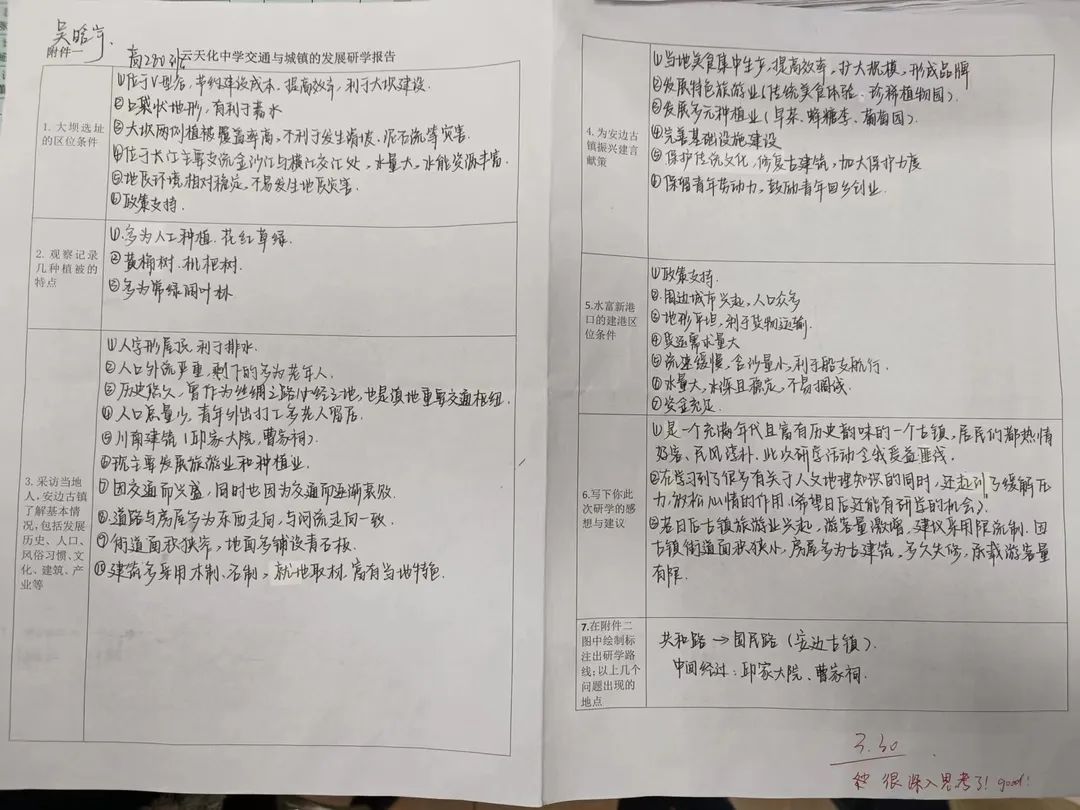 吴晗宇.
附件一
高280班云天化中学交通与城镇的发展研学报告
1. 大坝选址的区位条件
①位于V型谷，节约建设成本，提高效率，利于大坝建设.
②口袋状地形，有利于蓄水
③大坝两侧植被覆盖率高，不利于发生滑坡、泥石流等灾害.
④位于长江主要支流金沙江与横江交汇处，水量大，水能资源丰富.
⑤地质环境相对稳定，不易发生地质灾害.
⑥政策支持.
2. 观察记录几种植被的特点
①.多为人工种植.花红草绿.
②黄桷树.枇杷树.
③多为常绿阔叶林
3. 采访当地人，安边古镇了解基本情况，包括发展历史、人口、风俗习惯、文化、建筑、产业等
①人字形屋顶，利于排水.
②人口外流严重，剩下的多为老年人.
③历史悠久，曾作为丝绸之路必经之地，也是滇地重要交通枢纽.
④人口总量少，青年外出打工多老人留居.
⑤川南建筑（邱家大院，曹家祠）.
⑥现主要发展旅游业和种植业.
⑦因交通而兴盛，同时也因为交通而逐渐衰败.
⑧道路与房屋多为东西走向，与河流走向一致.
⑨街道面积狭窄，地面多铺设青石板.
⑩建筑多采用木制、石制，就地取材.富有当地特色.
4. 为安边古镇振兴建言献策
①当地美食集中生产，提高效率，扩大规模，形成品牌
②发展特色旅游业（传统美食体验、珍稀植物园）.
③发展多元种植业（早茶、蜂糖李、葡萄园）.
④完善基础设施建设
⑤保护传统文化，修复古建筑，加大保护力度
⑥保留青年劳动力，鼓励青年回乡创业.
5.水富新港口的建港区位条件
①政策支持.
②.周边城市兴起，人口众多
③地形平坦，利于货物运输.
④货运需求量大
⑤流速缓慢，含沙量小，利于船支航行.
⑥水量大，水深且稳定，不易搁浅.
⑦资金充足.
6.写下你此次研学的感想与建议
①是一个充满年代且富有历史韵味的一个古镇，居民们都热情
好客、民风淳朴.此次研学活动令我受益匪浅.
②在学习到了很多有关于人文地理知识的同时，还起到了缓解压
力，放松心情的作用.（希望日后还能有研学的机会）.
③若日后古镇旅游业兴起，游客量激增，建议采用限流制.因
古镇街道面积狭小，房屋多为古建筑，多久失修，承载游客量
有限.
7.在附件二图中绘制标注出研学路线；以上几个问题出现的地点
共和路→国民路（安边古镇）.
中间经过：邱家大院、曹家祠.
3.30
很深入思考了！good！